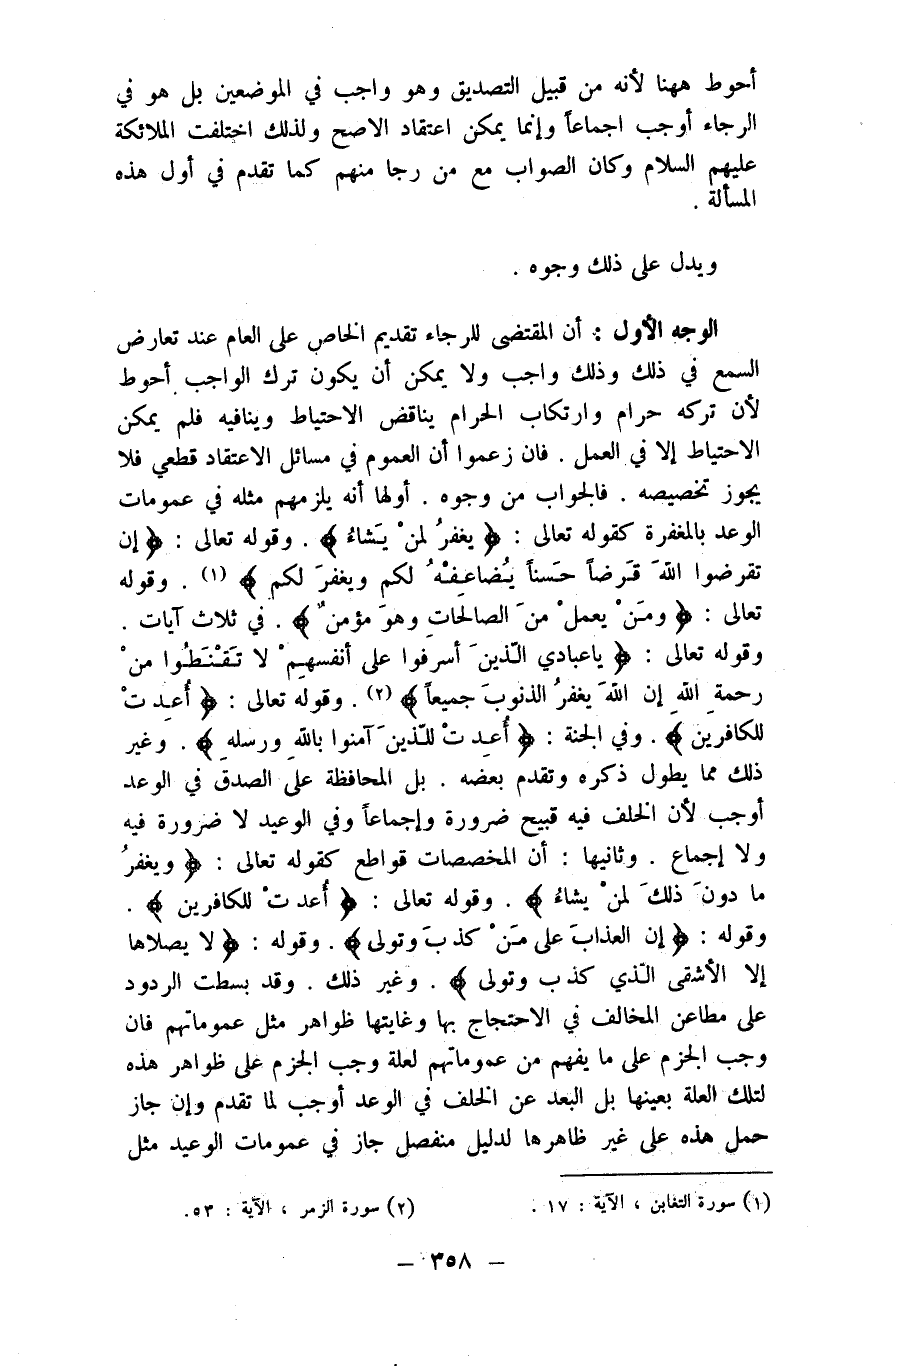 أحوط ههنا لأنه من قبيل التصديق وهو واجب في الموضعين بل هو في
الرجاء أوجب اجماعاً وإنما يمكن اعتقاد الاصح ولذلك اختلفت الملائكة
عليهم السلام وكان الصواب مع من رجا منهم كما تقدم في أول هذه
المسألة .
ويدل على ذلك وجوه .
الوجه الأول : أن المقتضى للرجاء تقديم الخاص على العام عند تعارض
السمع في ذلك وذلك واجب ولا يمكن أن يكون ترك الواجب أحوط
لأن تركه حرام وارتكاب الحرام يناقض الاحتياط وينافيه فلم يمكن
الاحتياط إلا في العمل . فان زعموا أن العموم في مسائل الاعتقاد قطعي فلا
يجوز تخصيصه . فالجواب من وجوه . أولها أنه يلزمهم مثله في عمومات
الوعد بالمغفرة كقوله تعالى : ﴿ يغفرُ لمنْ يَشاءُ ﴾ . وقوله تعالى : ﴿ إن
تقرضوا اللهَ قَرضاً حَسناً يُضاعِفْهُ لكم ويغفرَ لكم ﴾ (١) . وقوله
تعالى : ﴿ ومَنْ يعملْ منَ الصالحاتِ وهوَ مؤمنٌ ﴾ . في ثلاث آيات .
وقوله تعالى : ﴿ ياعبادي الّذينَ أسرفوا على أنفسهِمْ لا تَقْنَطُوا منْ
رحمةِ اللهِ إن اللهَ يغفرُ الذنوبَ جميعاً ﴾ (٢) . وقوله تعالى : ﴿ أُعِدتْ
للكافرين ﴾ . وفي الجنة : ﴿ أُعِدتْ للّذينَ آمنوا باللهِ ورسلهِ ﴾ . وغير
ذلك مما يطول ذكره وتقدم بعضه . بل المحافظة على الصدق في الوعد
أوجب لأن الخلف فيه قبيح ضرورة وإجماعاً وفي الوعيد لا ضرورة فيه
ولا إجماع . وثانيها : أن المخصصات قواطع كقوله تعالى : ﴿ ويغفرُ
ما دونَ ذلكَ لمنْ يشاءُ ﴾ . وقوله تعالى : ﴿ أُعدتْ للكافرين ﴾ .
وقوله : ﴿ إن العذابَ على مَنْ كذبَ وتولى ﴾ . وقوله : ﴿ لا يصلاها
إلا الأشقى الّذي كذب وتولى ﴾ . وغير ذلك . وقد بسطت الردود
على مطاعن المخالف في الاحتجاج بها وغايتها ظواهر مثل عموماتهم فان
وجب الجزم على ما يفهم من عموماتهم لعلة وجب الجزم على ظواهر هذه
لتلك العلة بعينها بل البعد عن الخلف في الوعد أوجب لما تقدم وإن جاز
حمل هذه على غير ظاهرها لدليل منفصل جاز في عمومات الوعيد مثل
(١) سورة التغابن ، الآية : ١٧ . (٢) سورة الزمر ، الآية : ٥٣.
– ٣٥٨ –